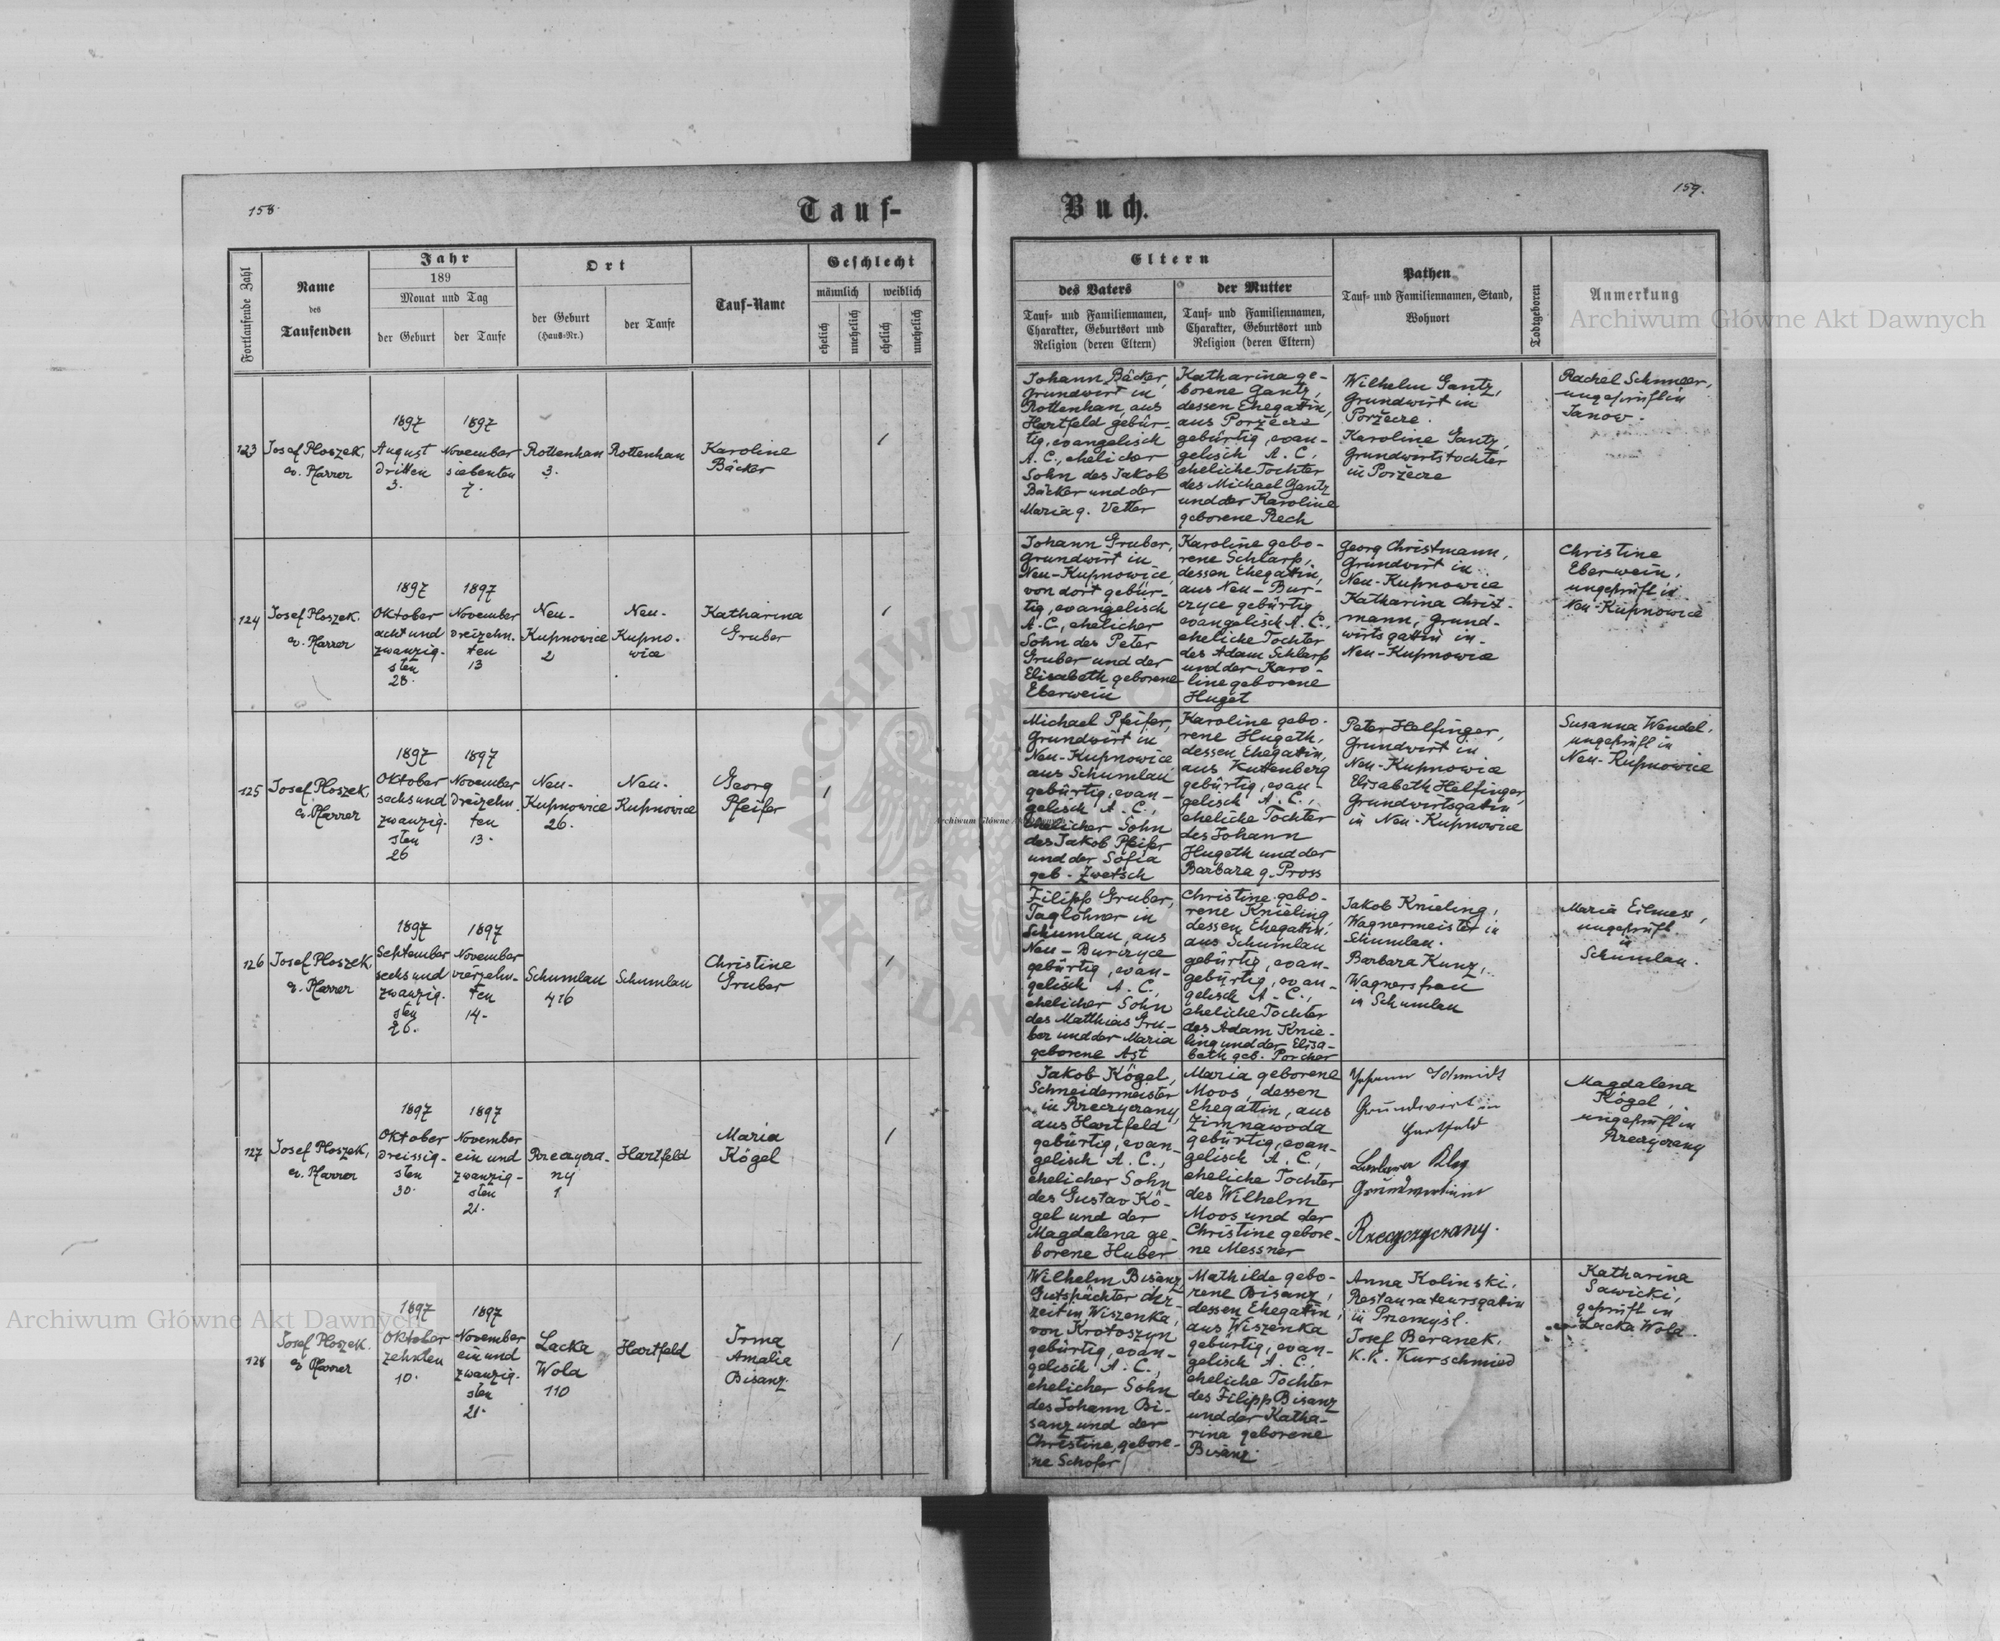 158
Tauf-
Fortlaufende Zahl
Name
des
Taufenden
Jahr
189
Monat und Tag
der Geburt
der Taufe
Ort
der Geburt
(Haus-Nr.)
der Taufe
Tauf-Name
Geschlecht
männlich
weiblich
ehelich
unehelich
ehelich
unehelich
123
Josef Ploszek,
ev. Pfarrer
1897
August
dritten
3.
1897
November
siebenten
7.
Rottenhan
3.
Rottenhan
Karoline
Bäcker
1
124
Josef Ploszek,
ev. Pfarrer
1897
Oktober
acht und
zwanzig-
sten
28.
1897
November
dreizehn-
ten
13
Neu-
Kupnowice
2
Neu-
Kupno-
wice
Katharina
Gruber
1
125
Josef Ploszek,
ev. Pfarrer
1897
Oktober
sechs und
zwanzig-
sten
26
1897
November
dreizehn-
ten
13.
Neu-
Kupnowice
26.
Neu-
Kupnowice
Georg
Pfeifer
1
126
Josef Ploszek,
ev. Pfarrer
1897
September
sechs und
zwanzig-
sten
26.
1897
November
vierzehn-
ten
14.
Schumlau
416
Schumlau
Christine
Gruber
1
127
Josef Ploszek,
ev. Pfarrer
1897
Oktober
dreissig-
sten
30.
1897
November
ein und
zwanzig-
sten
21.
Rzeczyca-
ny
1
Hartfeld
Maria
Kögel
1
128
Josef Ploszek,
ev. Pfarrer
1897
Oktober
zehnten
10.
1897
November
ein und
zwanzig-
sten
21.
Lacka
Wola
110
Hartfeld
Irma
Amalie
Bisanz
1
Buch.
159.
Eltern
des Vaters
Tauf- und Familiennamen,
Charakter, Geburtsort und
Religion (deren Eltern)
der Mutter
Tauf- und Familiennamen,
Charakter, Geburtsort und
Religion (deren Eltern)
Pathen
Tauf- und Familiennamen, Stand,
Wohnort
Todtgeboren
Anmerkung
Johann Bäcker,
Grundwirt in
Rottenhan, aus
Hartfeld gebür-
tig, evangelisch
A. C., ehelicher
Sohn des Jakob
Bäcker und der
Maria g. Vetter
Katharina ge-
borene Gantz,
dessen Ehegatin,
aus Porzecze
gebürtig, evan-
gelisch A. C.,
eheliche Tochter
des Michael Gantz
und der Karoline
geborene Rech
Wilhelm Gantz,
Grundwirt in
Porzecze.
Karoline Gantz,
Grundwirtstochter
in Porzecze
Rachel Schmeer,
ungeprüft in
Janow.
Johann Gruber,
Grundwirt in
Neu-Kupnowice,
von dort gebür-
tig, evangelisch
A. C., ehelicher
Sohn des Peter
Gruber und der
Elisabeth geborene
Eberwein
Karoline gebo-
rene Schlarp,
dessen Ehegatin,
aus Neu-Bur-
czyce gebürtig,
evangelisch A. C.,
eheliche Tochter
des Adam Schlarp
und der Karo-
line geborene
Huget
Georg Christmann,
Grundwirt in
Neu-Kupnowice
Katharina Christ-
mann, Grund-
wirtsgattin in
Neu-Kupnowice
Christine
Eberwein,
ungeprüft in
Neu-Kupnowice
Michael Pfeifer,
Grundwirt in
Neu-Kupnowice
aus Schumlau
gebürtig, evan-
gelisch A. C.,
ehelicher Sohn
des Jakob Pfeifer
und der Sofia
geb. Zwetsch
Karoline gebo-
rene Hugeth,
dessen Ehegatin,
aus Kuttenberg
gebürtig, evan-
gelisch A. C.,
eheliche Tochter
des Johann
Hugeth und der
Barbara g. Pross
Peter Helfinger,
Grundwirt in
Neu-Kupnowice
Elisabeth Helfinger,
Grundwirtsgatin
in Neu-Kupnowice
Susanna Wendel,
ungeprüft in
Neu-Kupnowice
Filipp Gruber,
Taglöhner in
Schumlau, aus
Neu-Burczyce
gebürtig, evan-
gelisch A. C.,
ehelicher Sohn
des Matthias Gru-
ber und der Maria
geborene Ast
Christine gebo-
rene Knieling,
dessen Ehegattin,
aus Schumlau
gebürtig, evan-
gelisch A. C.,
eheliche Tochter
des Adam Knie-
ling und der Elisa-
beth geb. Porcher
Jakob Knieling,
Wagnermeister in
Schumlau.
Barbara Kunz,
Wagnersfrau
in Schumlau
Maria Eilmess,
ungeprüft
in
Schumlau.
Jakob Kögel,
Schneidermeister
in Rzeczycany,
aus Hartfeld
gebürtig, evan-
gelisch A. C.,
ehelicher Sohn
des Gustav Kö-
gel und der
Magdalena ge-
borene Huber
Maria geborene
Moos, dessen
Ehegattin, aus
Zimnawoda
gebürtig, evan-
gelisch A. C.,
eheliche Tochter
des Wilhelm
Moos und der
Christine gebore-
ne Messner
Johann Schmidt
Grundwirt in
Hartfeld
Grundwirtin
Magdalena
Kögel,
ungeprüft in
Rzeczycany
Wilhelm Bisanz
Gutspächter der-
zeit in Wiszenka,
von Krotoszyn
gebürtig, evan-
gelisch A. C.,
ehelicher Sohn
des Johann Bi-
sanz und der
Christine, gebore-
ne Schofer
Mathilde gebo-
rene Bisanz,
dessen Ehegatin,
aus Wiszenka
gebürtig, evan-
gelisch A. C.,
eheliche Tochter
des Filipp Bisanz
und der Katha-
rina geborene
Bisanz.
Anna Kolinski,
Restaurateursgatin
in Przemysl.
Josef Beranek,
K. K. Kurschmied
Katharina
Sawicki,
geprüft in
Lacka Wola.
Archiwum Główne Akt Dawnych
Archiwum Główne Akt Dawnych
Archiwum Główne Akt Dawnych